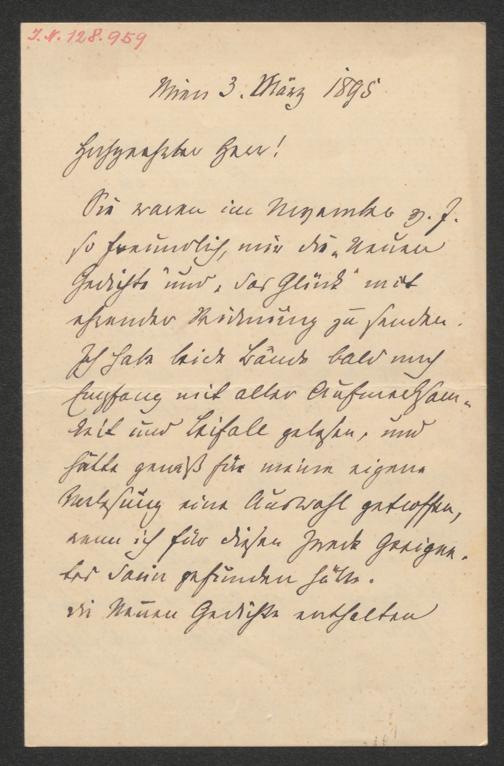 J.N. 128.959
Wien 3. März 1895
Hochgeehrter Herr!
Sie waren im November v. J.
so freundlich, mir die „Neuen
Gedichte" und „Das Glück" mit
ehrender Widmung zu senden.
Ich habe beide Bände bald nach
Empfang mit aller Aufmerksam-
keit und Beifall gelesen, und
hätte gewiß für meine eigene
Vorlesung eine Auswahl getroffen,
wenn ich für diesen Zweck Geeigne-
tes darin gefunden hätte.
die Neuen Gedichte enthalten